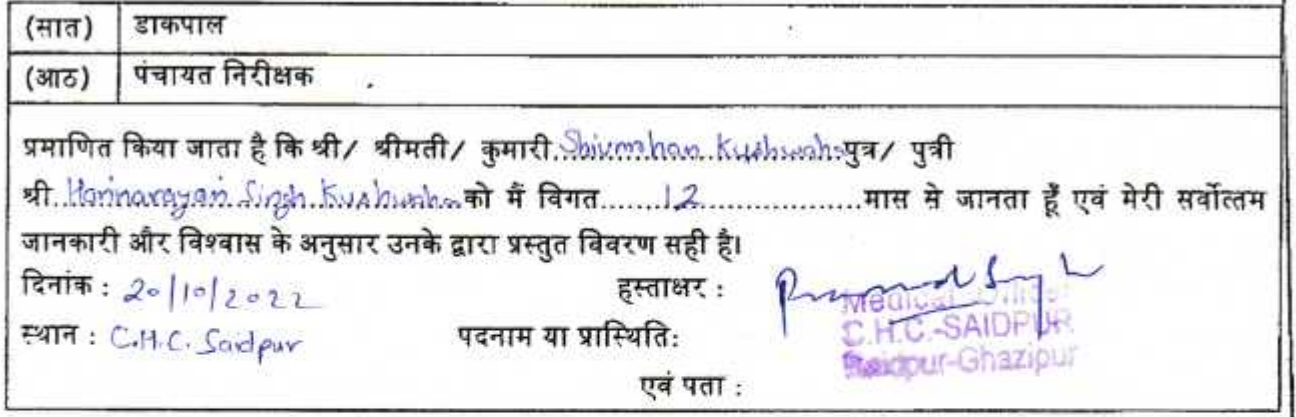 (सात) डाकपाल
(आठ) पंचायत निरीक्षक
प्रमाणित किया जाता है कि श्री/ श्रीमती/ कुमारी Shivmohan Kushwaha पुत्र/ पुत्री
श्री Harinarayan Singh Kushwaha को मैं विगत........12....................मास से जानता हूँ एवं मेरी सर्वोत्तम
जानकारी और विश्वास के अनुसार उनके द्वारा प्रस्तुत विवरण सही है।
दिनांक : 20/10/2022 हस्ताक्षर :
स्थान : C.H.C. Saidpur पदनाम या प्रास्थिति: Medical Officer
C.H.C.-SAIDPUR
Saidpur-Ghazipur
एवं पता :